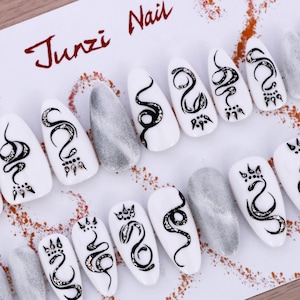 Junzi Nail